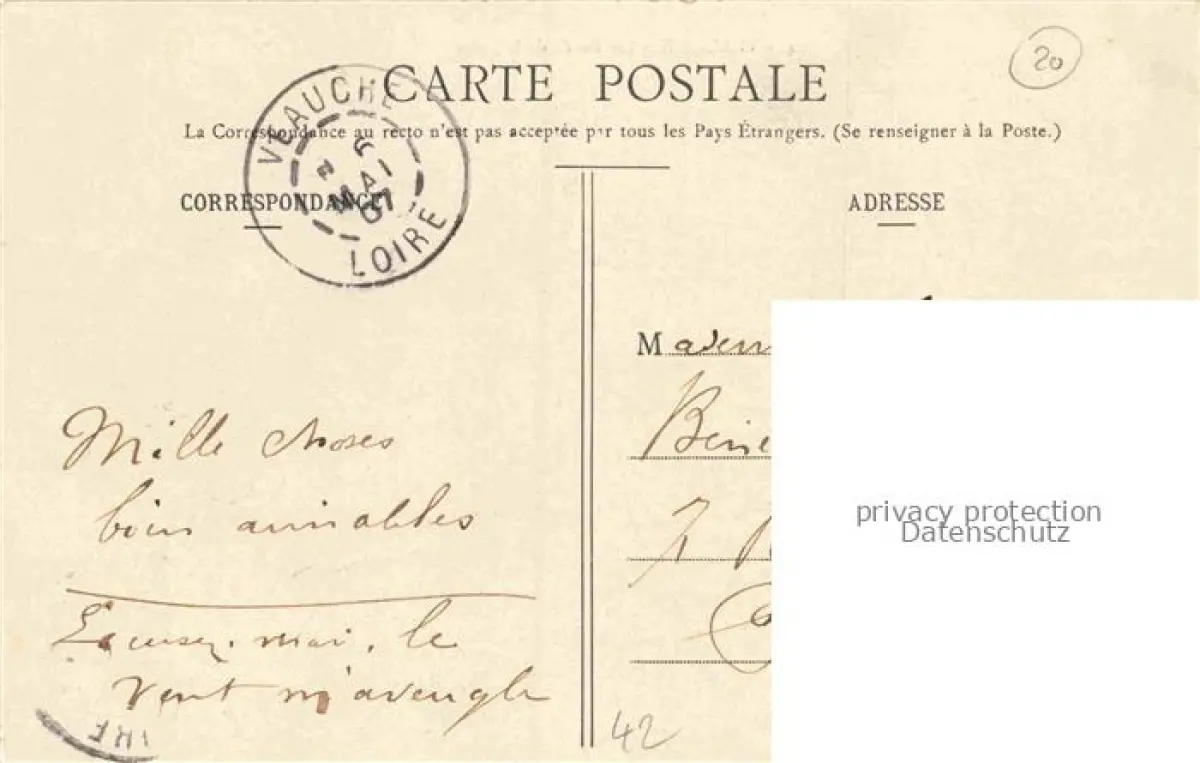 20
CARTE POSTALE
La Correspondance au recto n'est pas acceptée par tous les Pays Étrangers. (Se renseigner à la Poste.)
VEAUCHE
MAI
07
LOIRE
CORRESPONDANCE
ADRESSE
Mille choses
bien aimables
Excusez-moi, le
vent m'aveugle
M
privacy protection
Datenschutz
7
42